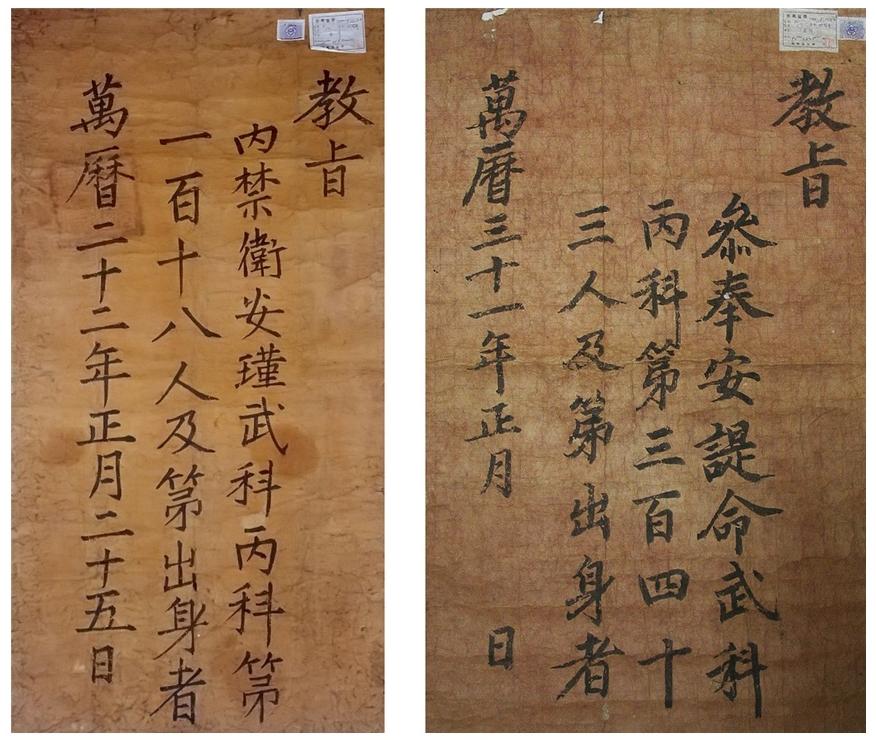 教旨
内禁衛安瑾武科丙科第
一百十八人及第出身者
萬曆二十二年正月二十五日
教旨
叅奉安諟命武科
丙科第三百四十
三人及第出身者
萬曆三十一年正月日